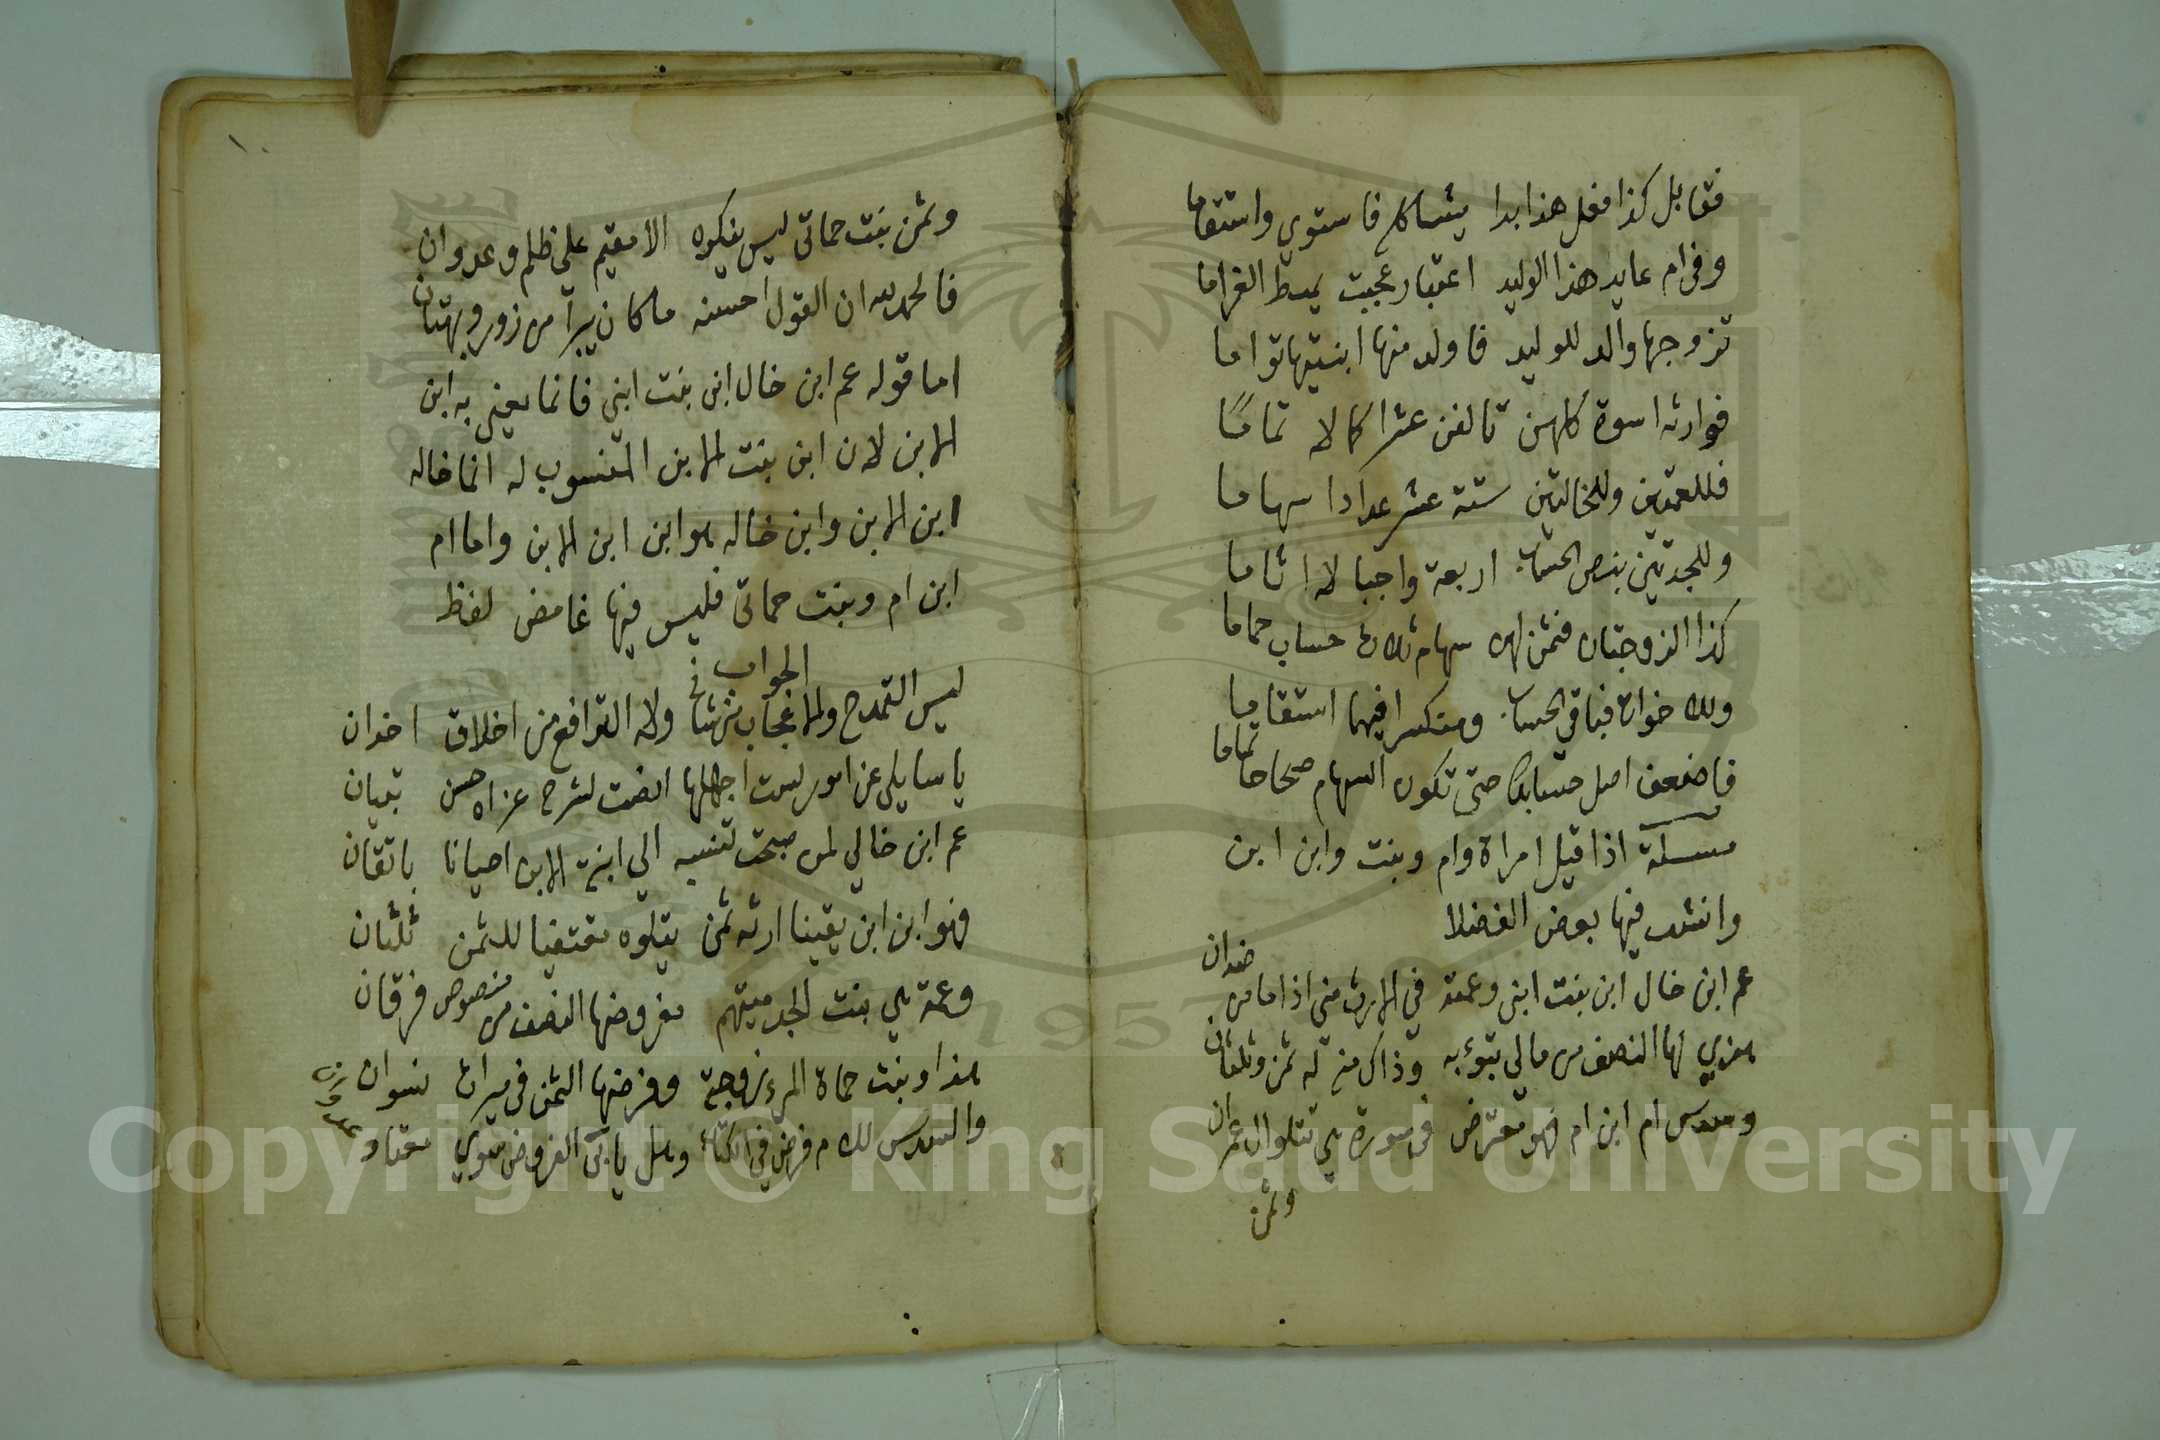 فقابل كذا فعل هذا بدا يشاكل فاستوي واستقاما
وفي ام عايد هذا الوليد اعتبار عجيب يميط الغراما
تزوجها والد للوليد فاولد منها ابنتيها تواما
فوارثه اسوة كلهن تالفن عشرا كمالا تماما
فللعمتين وللخالتين ستة عشر عدادا سهاما
وللجدتين بنص الحساب اربعة واجبا لا اثاما
كذا الزوجتان فثمن لهن سهام ثلاث حساب حماما
وللاخوات فباقي الحساب ومنكسرا فيهما استقاما
فاضعف اصل حسابك حتى تكون السهام صحاحا تماما
مسئلة اذا قيل امراة وام وبنت وابن ابن
وانشد فيها بعض الفضلا
عم ابن خال ابن بنت ابني وعمته في الارث مني اذا ما مت ضدان
هذي لها النصف من مالي تبوء به وذاك منه له ثمن وثلثان
وسدس ام ابن ام فهو مفترض في سورة هي تتلو ال عمران
وثمن
١٠
وثمن بنت حماتي ليس ينكره الا مقيم علي ظلم وعدوان
فالحمد لله ان القول احسنه ما كان يبرآ من زور وبهتان
اما قوله عم ابن خال ابن بنت ابني فانما يعني به ابن
الابن لان ابن بنت الابن المنسوب له انما خاله
ابن الابن وابن خاله هو ابن ابن الابن واما ام
ابن ام وبنت حماتي فليس فيها غامض لفظ
الجواب
ليس التمدح والاعجاب من شاني ولا الترافع من اخلاق اخدان
يا سايلي عن امور لست اجهلها انصت لشرح عزاه حسن تبيان
عم ابن خالي لمن صحت تنسبه الي ابنة الابن احيانا باتقان
فهو ابن ابن يقينا ارثه ثمن يتلوه مقتفيا للثمن ثلثان
وعمة هي بنت الجد ميتهم مفروضها النصف من منصوص فرقان
هذا وبنت حماة المرء زوجة وفرضها الثمن في ميراث نسوان
والسدس للام فرض في الكتاب وهل يابى الفروض سوي معتاد عدوان